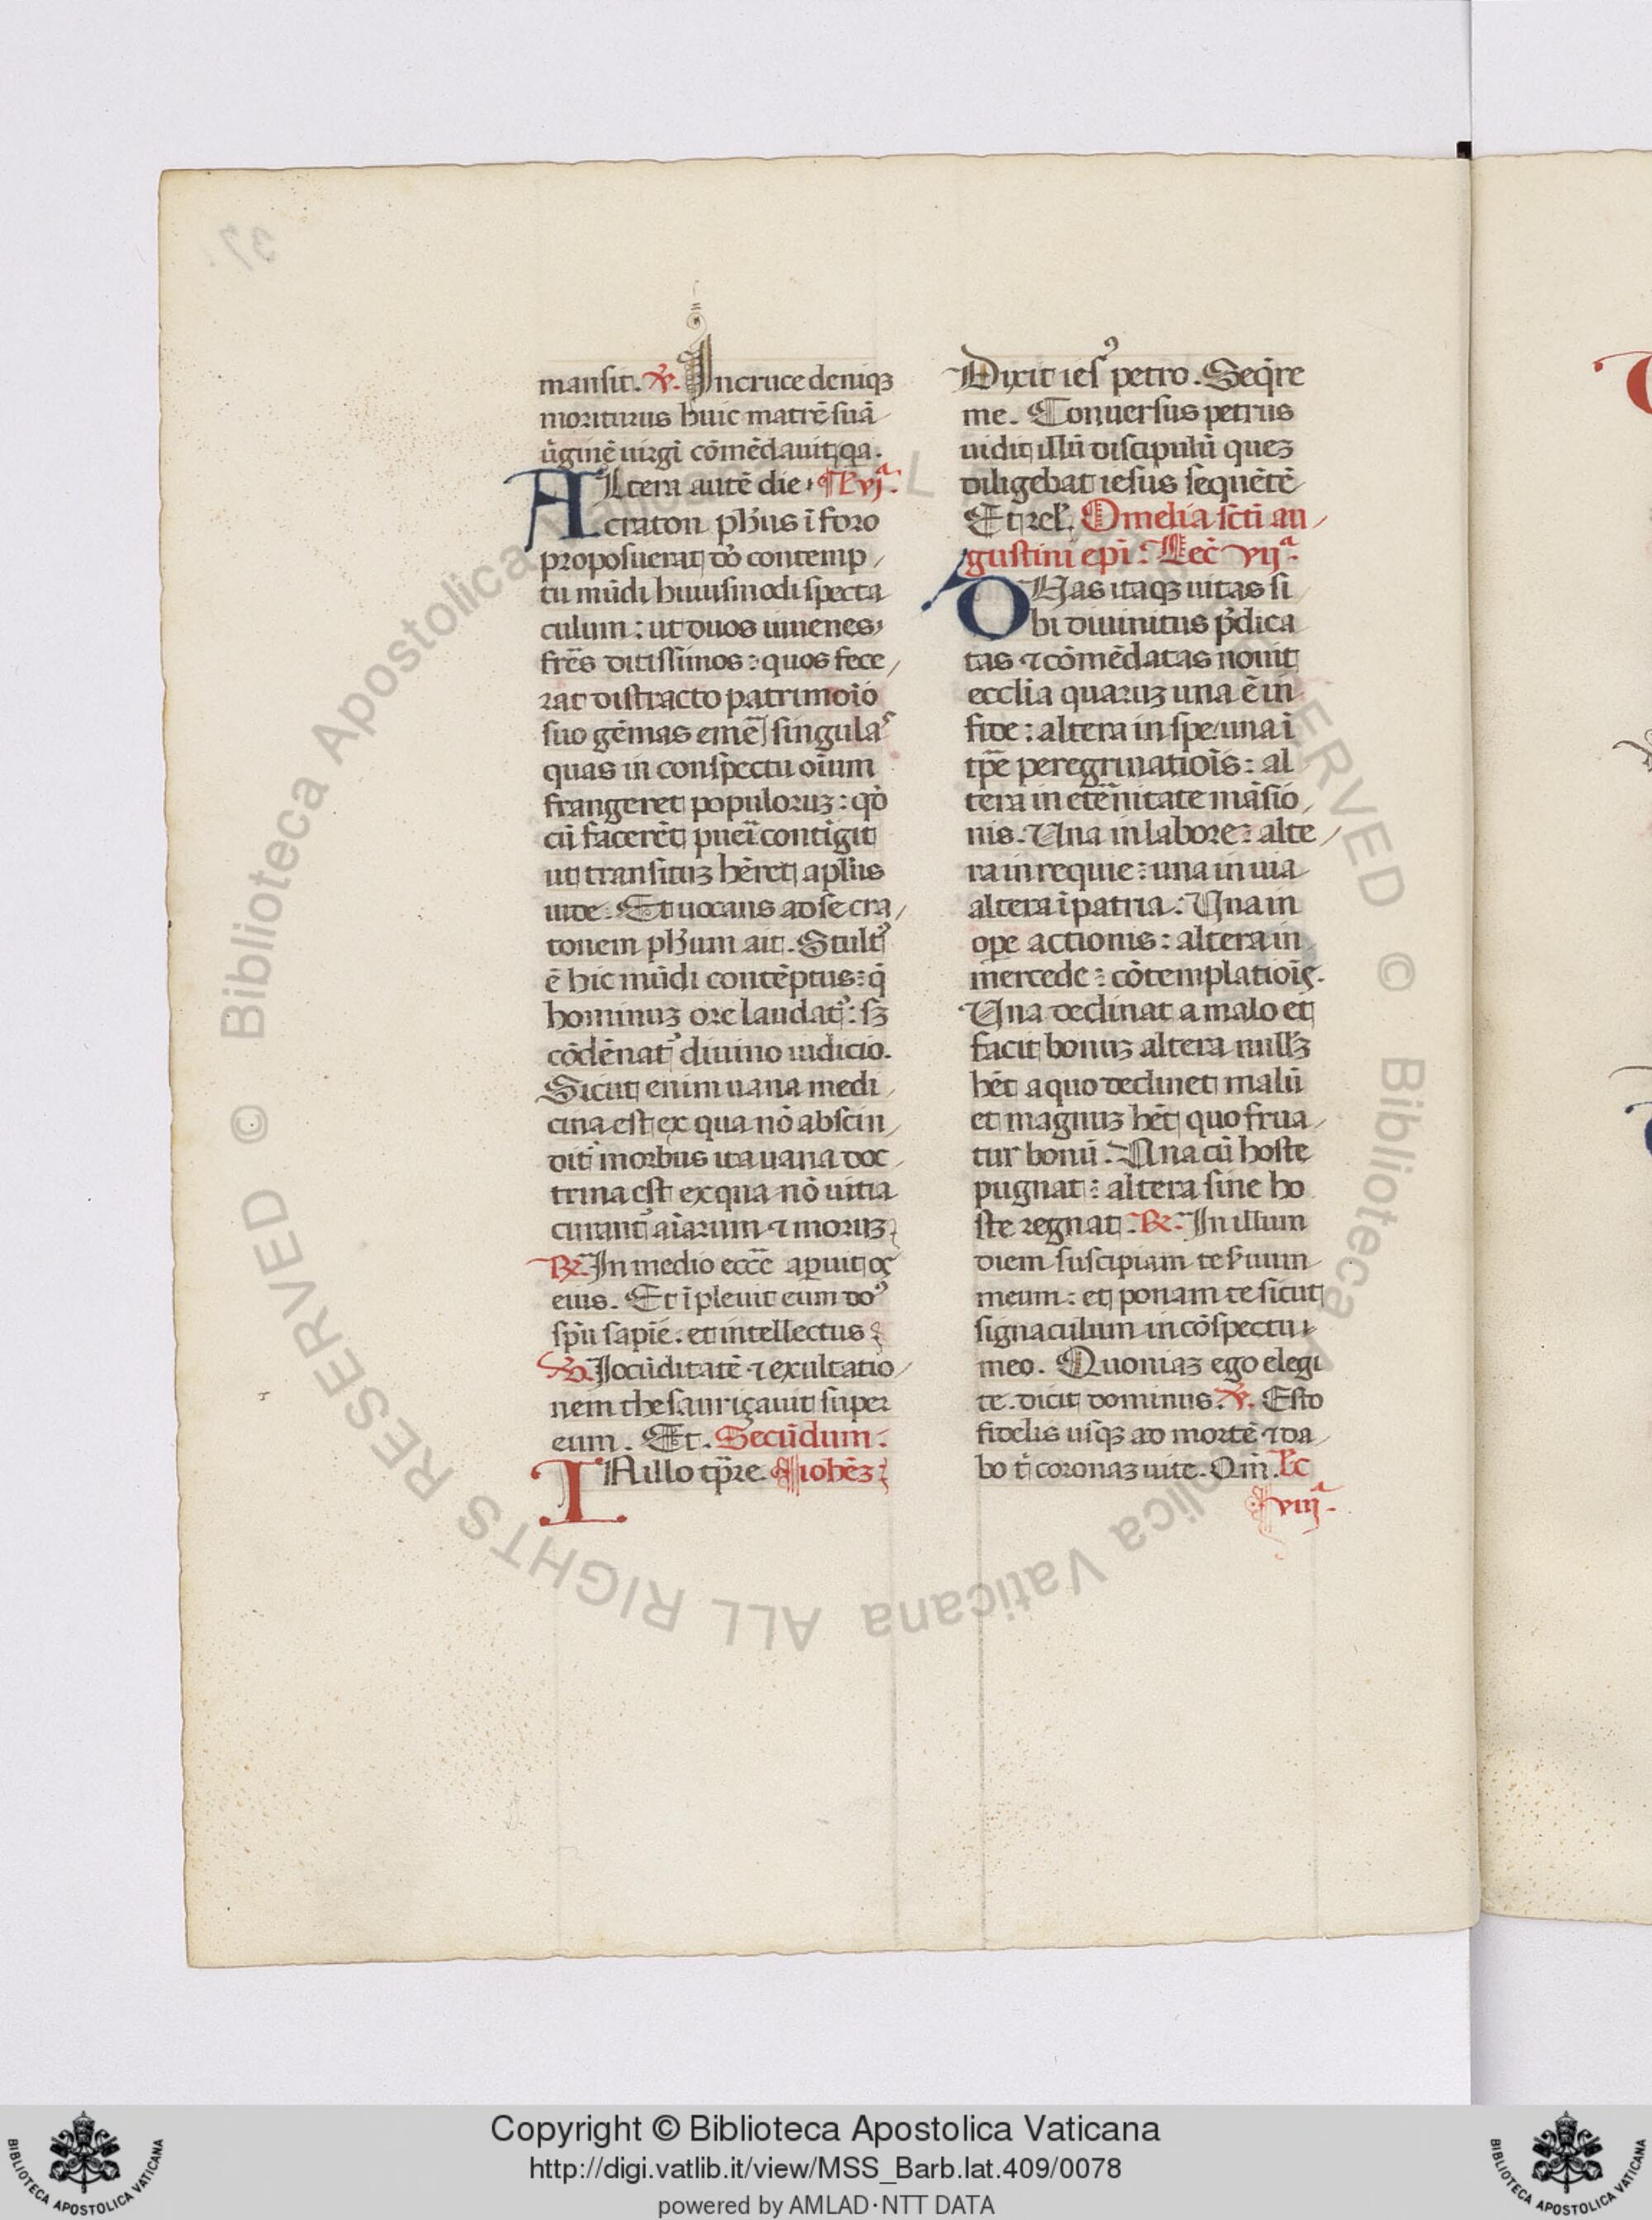 mansit. ℣. In cruce deniqꝫ
moriturus huic matrē suā
ūginē uirgī cōmēdauit qa.
ALtera autē die. L̄ vjᵃ.
craton ph̄us ī foro
proposuerat dō contemp/
tu mūdi huiusmodi specta
culum: ut duos iuuenes
frēs ditissimos: quos fece/
rat distracto patrimoīo
suo gēmas emē singulaˢ
quas in conspectu oīum
frangeret populoruꝫ: qō
cū facerēt pueī contigit
ut transituꝫ hēret apl̄us
inde. Et uocans ad se cra/
tonem ph̄um ait. Stultꝰ
ē hic mūdi contēptus: q̄
hominuꝫ ore laudat᷒: sꝫ
cōdēnat᷒ diuino iudicio.
Sicut enim uana medi/
cina est ex qua nō abscin/
dit᷒ morbus ita uana doc/
trina est ex qua nō uitia
curant᷒ aīarum ⁊ moruꝫ
℟. In medio ecc̄e aꝑuit os
eius. Et īpleuit eum doꝰ
sp̄u sapīe. et intellectus
℣. Jocūditatē ⁊ exultatio/
nem thesauriçauit super
eum. Et. Secūdum.
IN illo tp̄re. iohēꝫ
Dixit iesꝰ petro. Seq̄re
me. Conuersus petrus
uidit illū discipulū queꝫ
diligebat iesus sequētē
Et rel̄. Omelia sc̄ti au/
gustini ep̄i. Lec̄ vijᵃ.
DUas itaqꝫ uitas si
bi diuinitus p̄dica
tas ⁊ cōmēdatas nouit
ecclīa quaruꝫ una ē in
fide: altera in spe. una ī
tp̄e peregrinatioīs: al
tera in etēnitate māsio/
nis. Una in labore: alte/
ra in requie: una in uia
altera ī patria. Una in
oꝑe actionis: altera in
mercede: cōtemplatioīs.
Una declinat a malo et
facit bonuꝫ altera nullꝫ
hēt a quo declinet malū
et magnuꝫ hēt quo frua/
tur bonū. Una cū hoste
pugnat: altera sine ho
ste regnat. ℟. In illum
diem suscipiam te s̄uum
meum: et ponam te sicut
signaculum in cōspectu
meo. Quoniaꝫ ego elegi
te. dicit dominus. ℣. Esto
fidelis usqꝫ ad mortē ⁊ da/
bo t̄ coronaꝫ uite. Qm̄. L̄c
viijᵃ.
© Biblioteca Apostolica Vaticana ALL RIGHTS RESERVED © Biblioteca Apostolica Vaticana ALL RIGHTS RESERVED
Copyright © Biblioteca Apostolica Vaticana
http://digi.vatlib.it/view/MSS_Barb.lat.409/0078
powered by AMLAD·NTT DATA
BIBLIOTECA APOSTOLICA VATICANA
BIBLIOTECA APOSTOLICA VATICANA